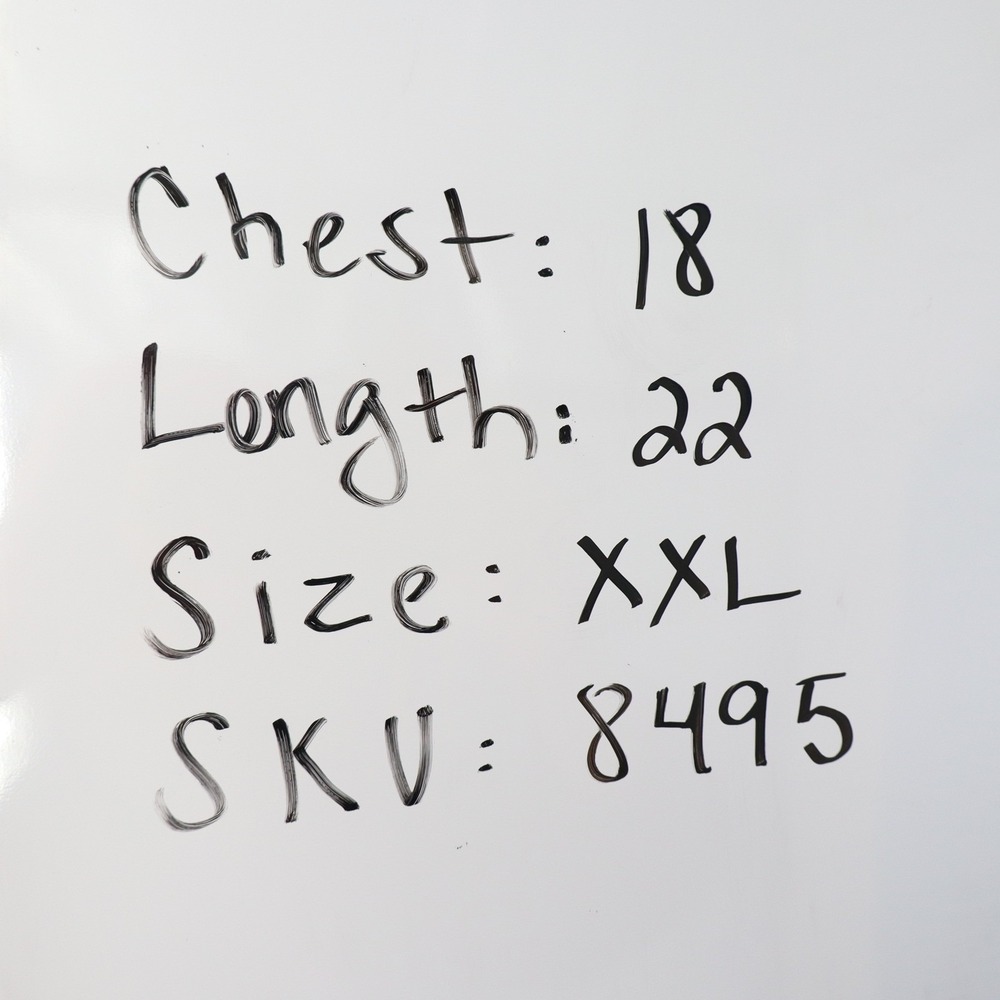 Chest: 18
Length: 22
Size: XXL
SKU: 8495